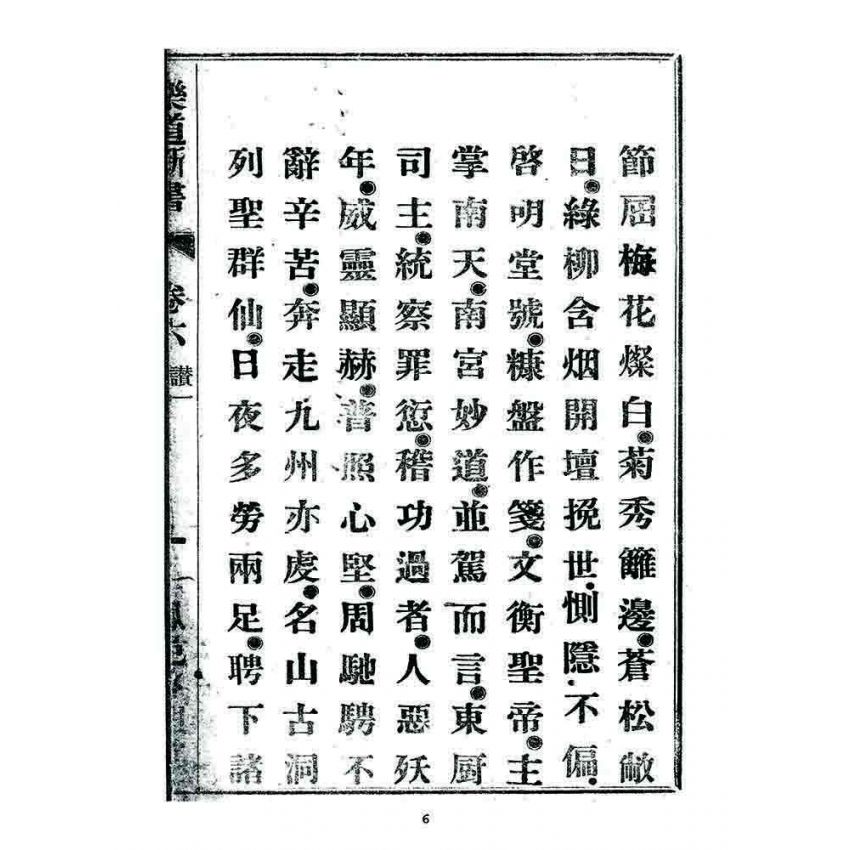 節屆梅花燦白◉菊秀籬邊◉蒼松敝
日◉綠柳含烟開壇挽世.惻隱.不偏.
啓明堂號◉糠盤作箋◉文衡聖帝◉主
掌南天◉南宮妙道◉並駕而言◉東厨
司主◉統察罪愆◉稽功過者◉人惡殀
年◉威靈顯赫◉普照心堅◉周馳騁不
辭辛苦◉奔走九州亦虔◉名山古洞
列聖群仙◉日夜多勞兩足◉聘下諸
樂道新書 卷六 讃一
6